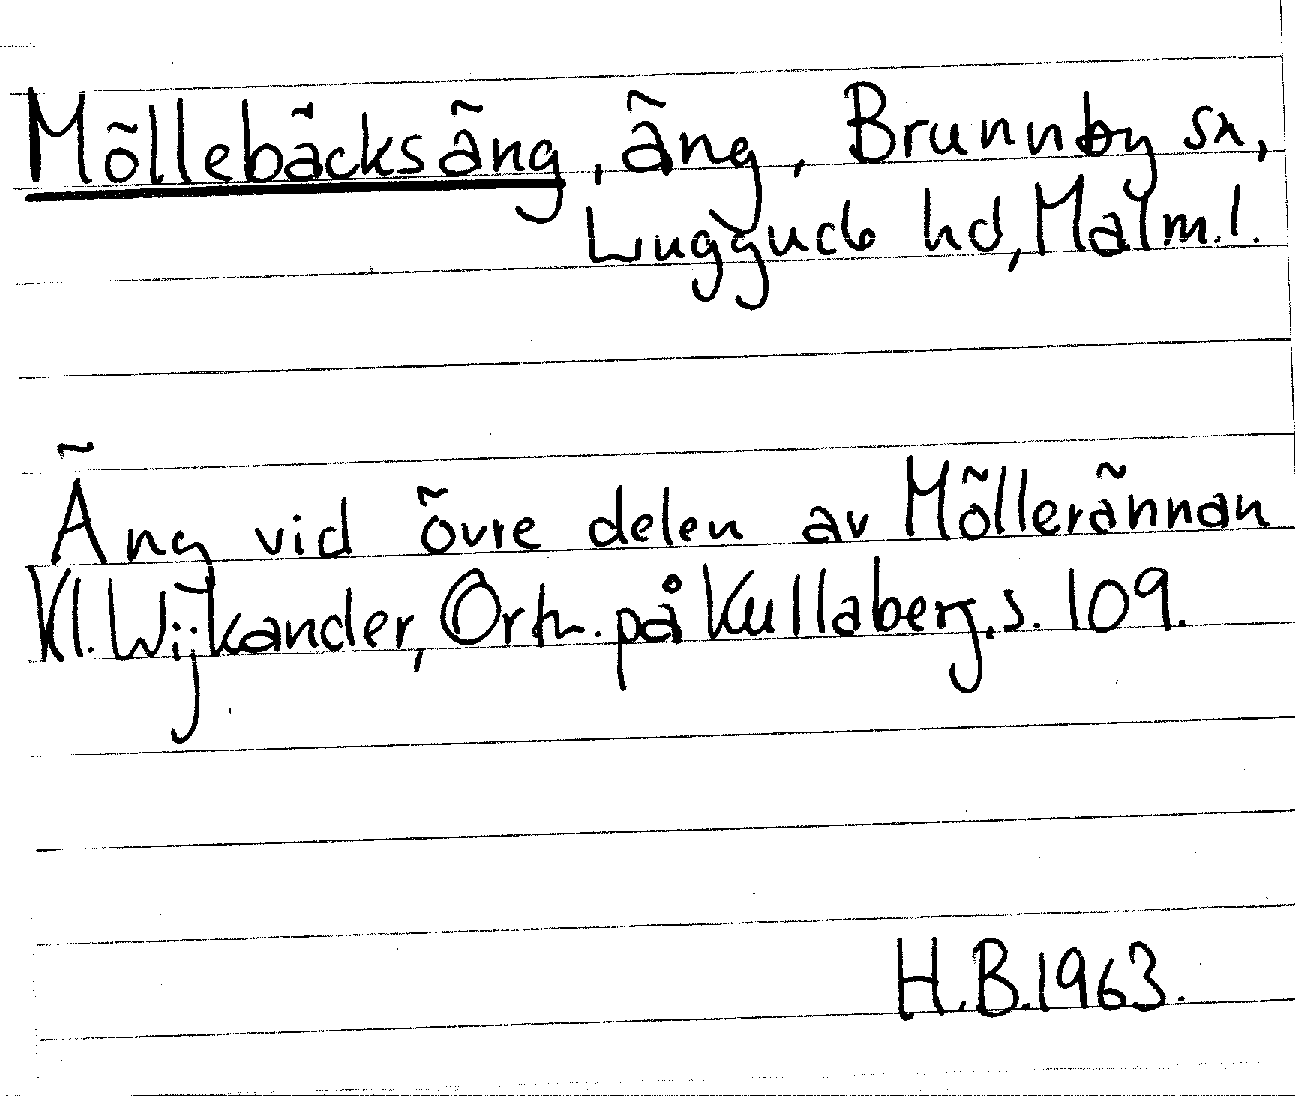 Möllebäcksäng, äng, Brunnby sn,
Luggude hd, Malm.l.
Äng vid övre delen av Möllerännan
Kl. Wijkander, Ortn. på Kullaberg, s. 109.
H.B. 1963.